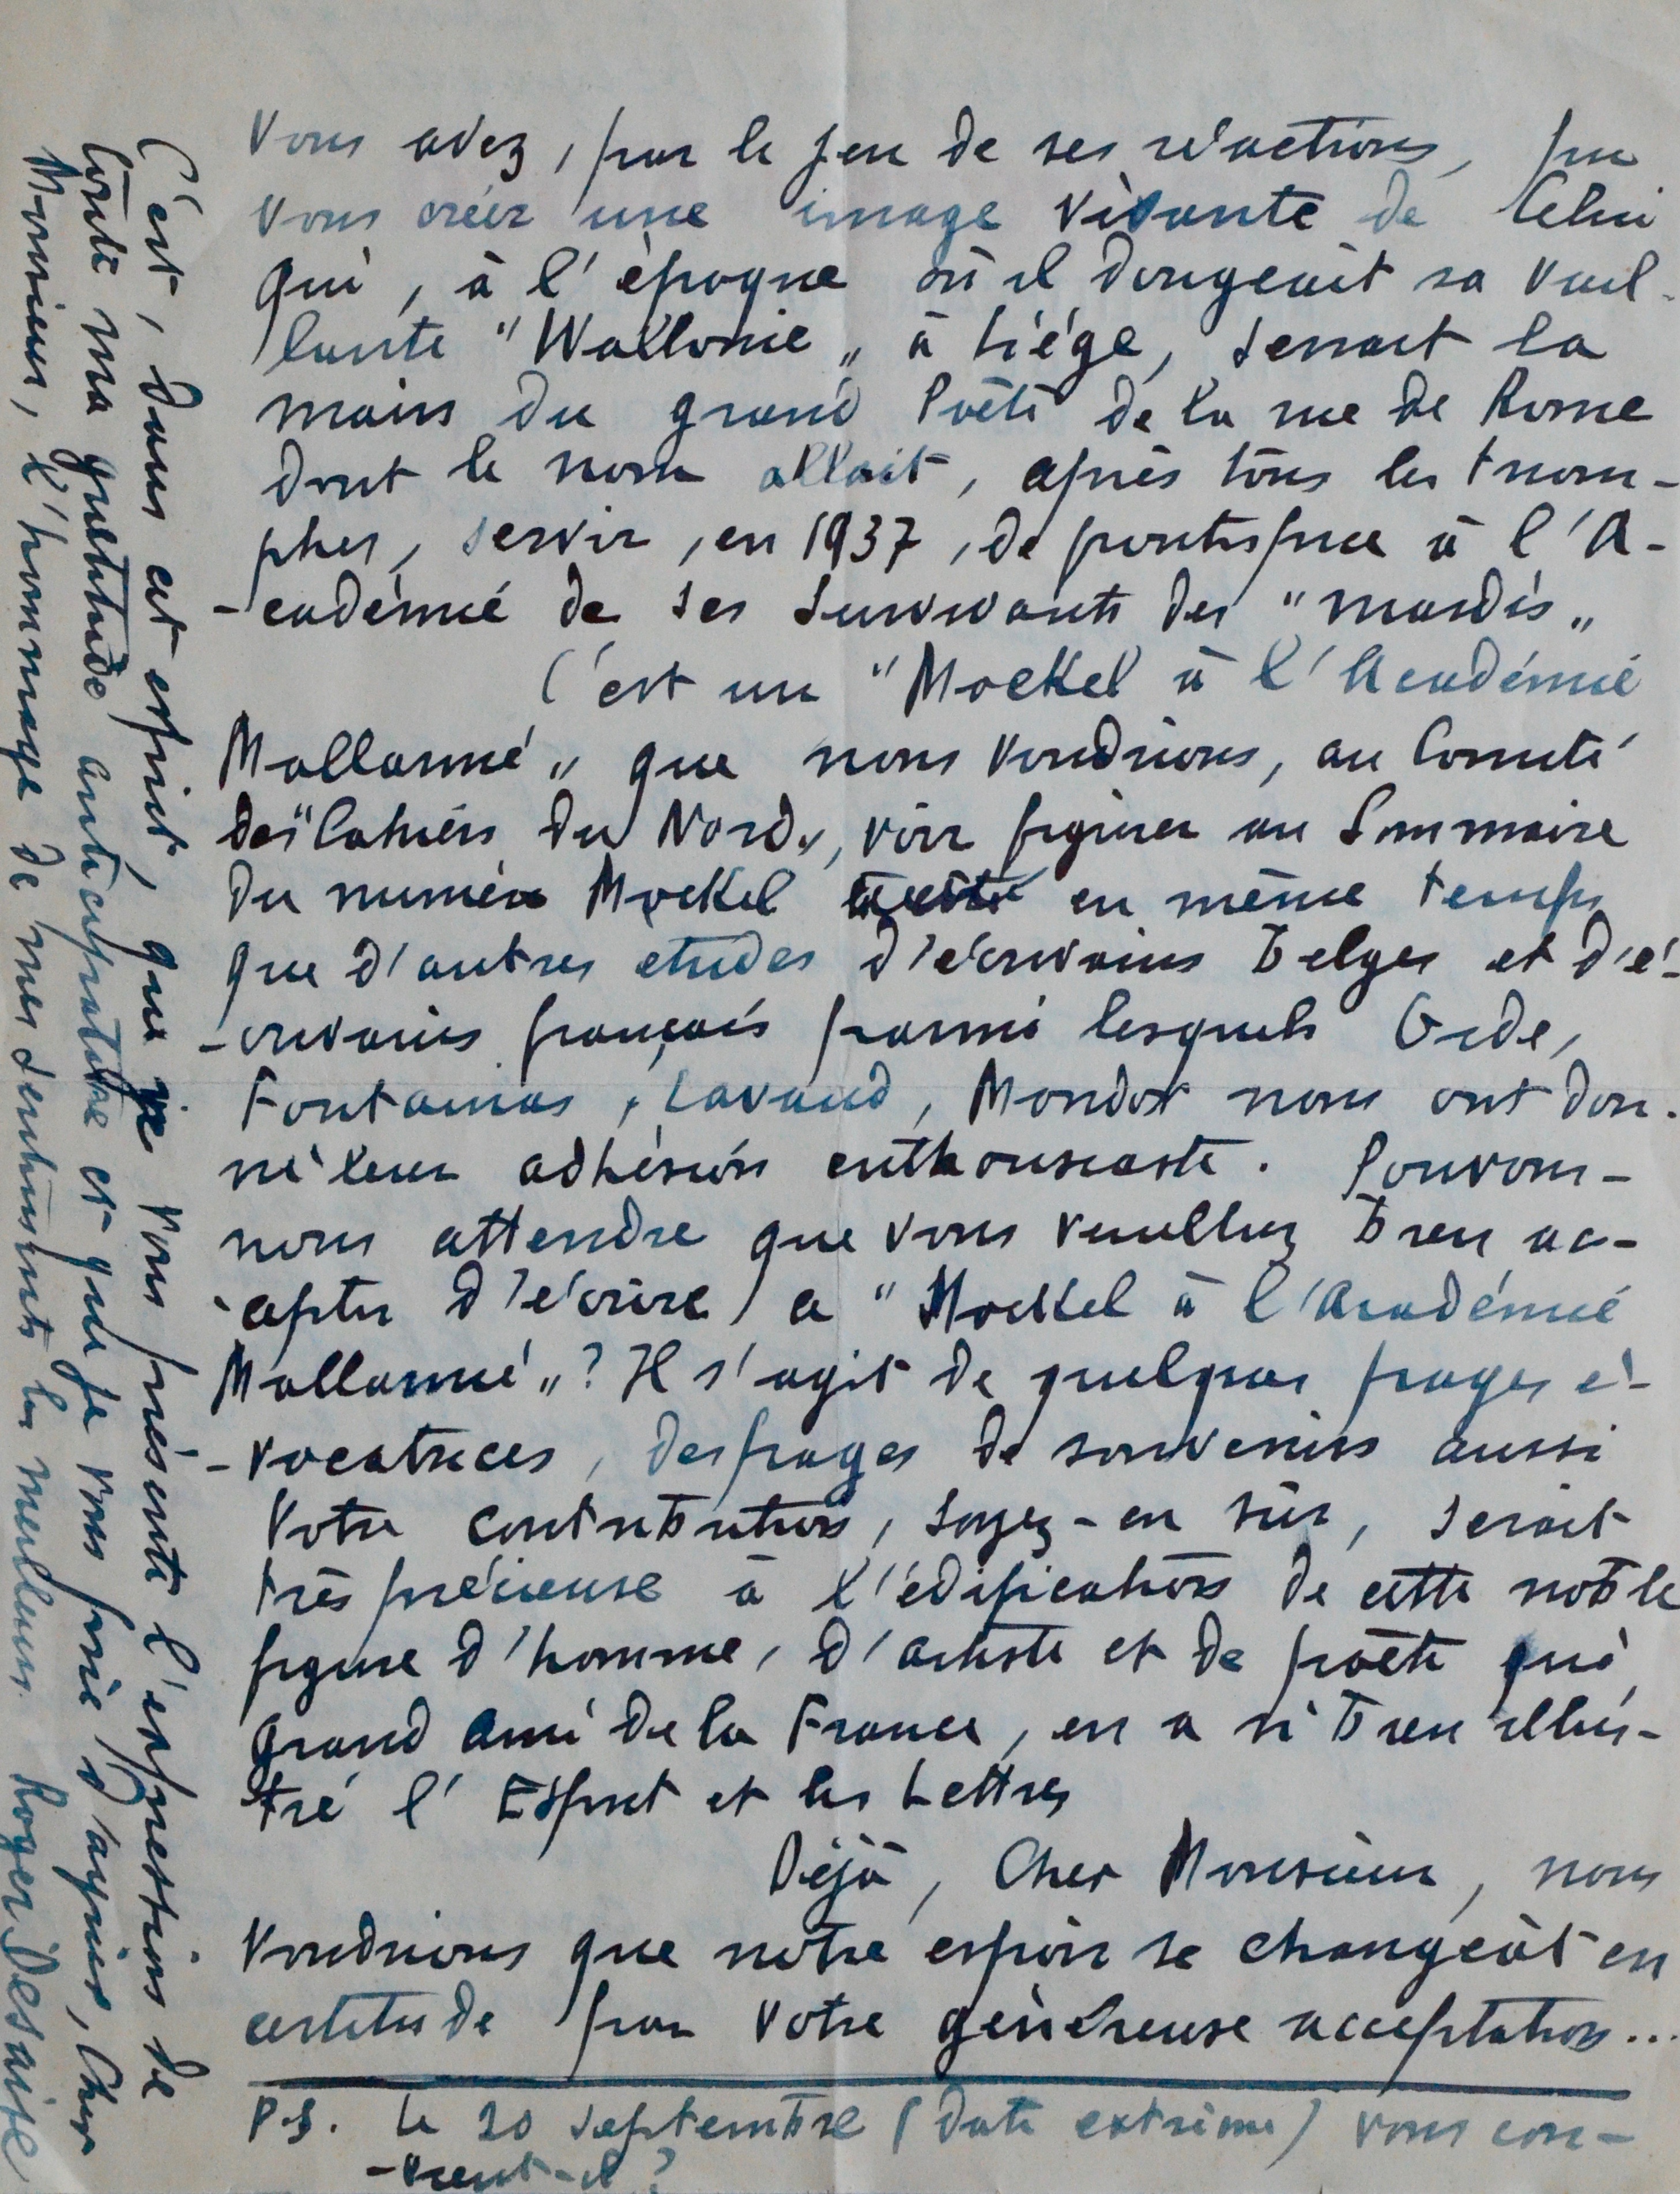 Vous avez, par le jeu de ses réactions, pu
vous créer une image vivante de Celui
qui, à l'époque où il dirigeait sa vail-
lante "Wallonie„ à Liége, serrait la
main du grand Poète de la rue de Rome
dont le nom allait, après tous les triom-
phes, servir, en 1937, de frontispice à l'A-
-cadémie de ses survivants des "mardis„
C'est un "Mockel à l'Académie
Mallarmé„ que nous voudrions, au Comité
des "Cahiers du Nord„, voir figurer au Sommaire
du numéro Mockel en même temps
que d'autres etudes d'écrivains belges et d'é-
-crivains français parmi lesquels Gide,
Fontainas, Lavaud, Mondor nous ont don-
né leur adhésion enthousiaste. Pouvons-
nous attendre que vous veuillez bien ac-
-cepter d'écrire ce "Mockel à l'Académie
Mallarmé„? Il s'agit de quelques pages é-
-vocatrices, des pages de souvenirs aussi
Votre contribution, soyez-en sûr, serait
très précieuse à l'édification de cette noble
figure d'homme, d'artiste et de poète qui,
grand ami de la France, en a si bien illus-
tré l'Esprit et les Lettres
Déjà, Cher Monsieur, nous
voudrions que notre espoir se changeât en
certitude par votre généreuse acceptation...
P.S. Le 20 septembre (date extrême) vous con-
-vient-il?
C'est, dans cet esprit, que je vous présente l'expression de
toute ma gratitude anticipative et que je vous prie d'agréer, Cher
Monsieur, l'hommage de mes sentiments les meilleurs. Roger Desaise